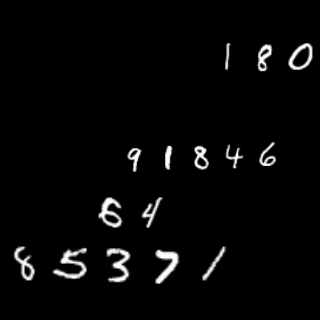 180
91846
64
85371